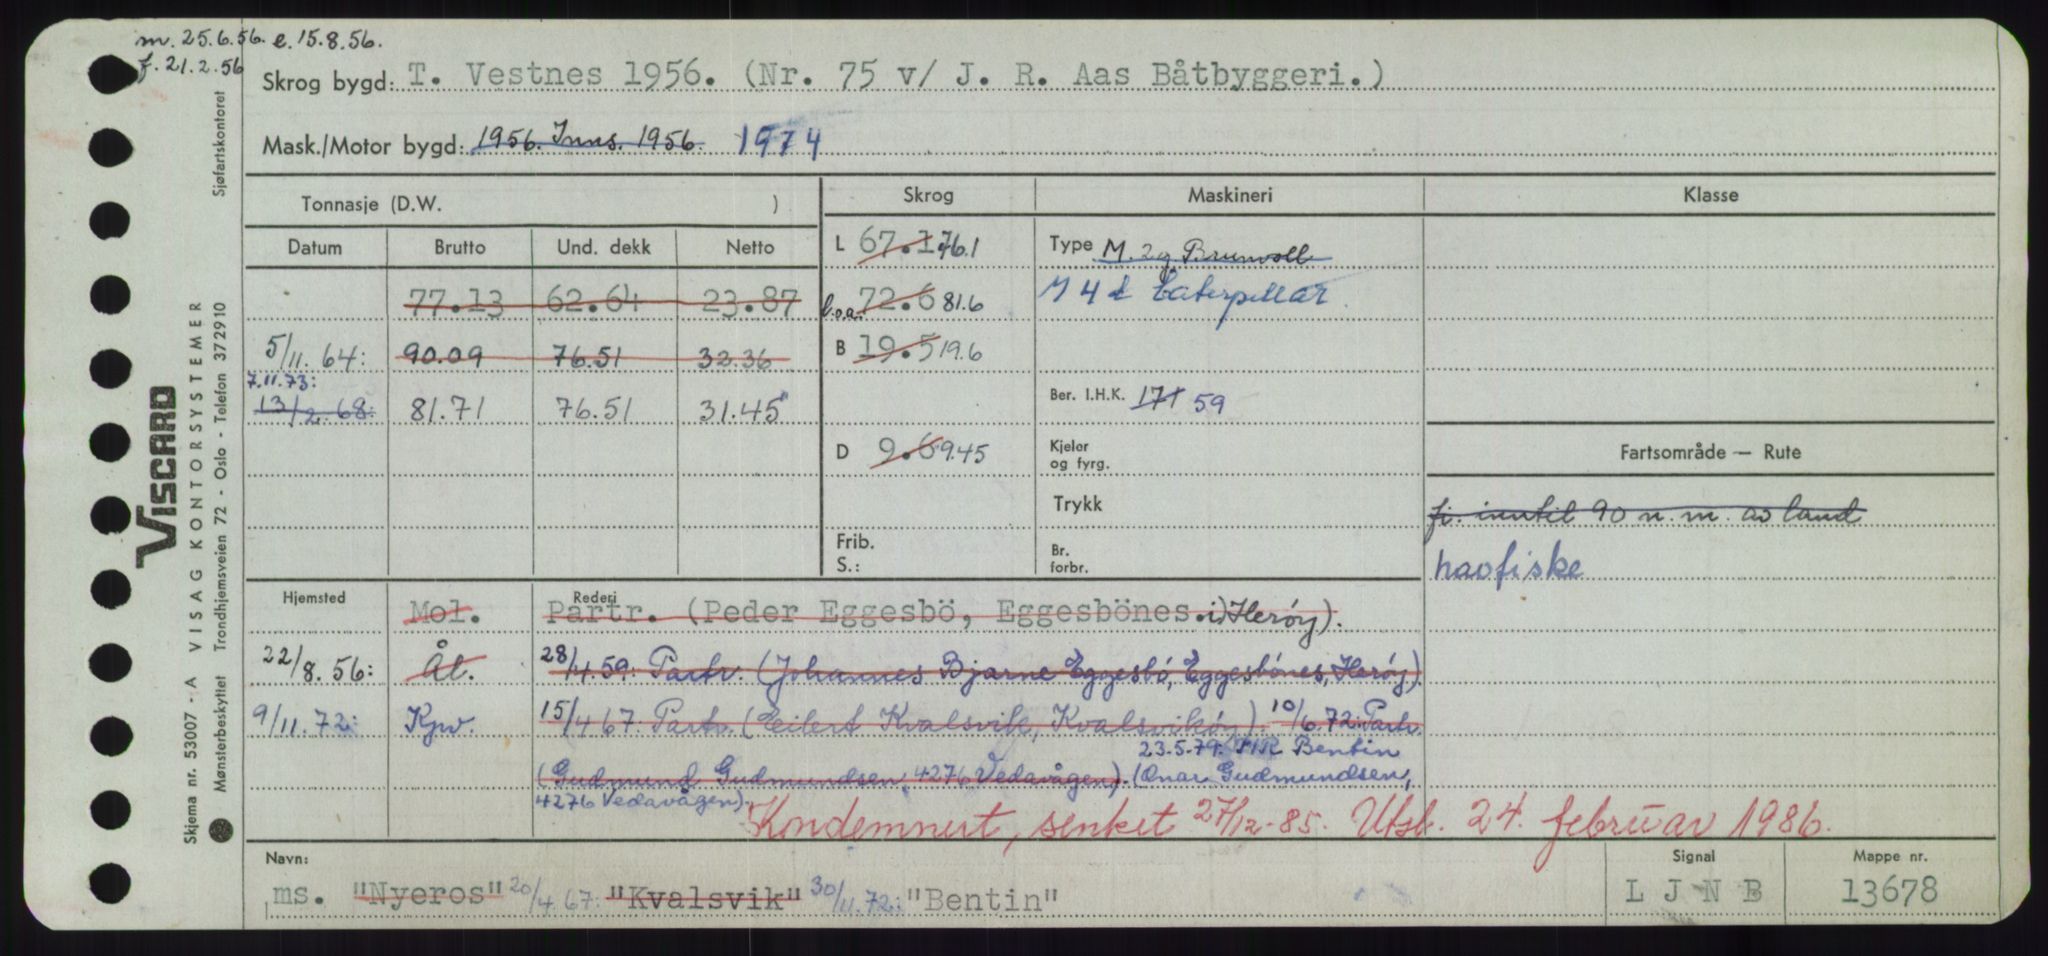 m. 25.6.56. e. 15.8.56.
f. 21.2.56
Skrog bygd: T. Vestnes 1956. (Nr. 75 v/ J. R. Aas Båtbyggeri.)
Mask./Motor bygd: 1956. Inns. 1956. 1974
Tonnasje (D.W. )
Skrog
Maskineri
Klasse
Datum Brutto Und. dekk Netto
L 67.1 76.1
Type M. 2 g. Brunvoll
77.13 62.64 23.87
l.o.a. 72.6 81.6
M 4 t Caterpillar.
5/11. 64: 90.09 76.51 32.36
B 19.5 19.6
7.11.73:
13/2. 68: 81.71 76.51 31.45
Ber. I.H.K. 171 59
D 9.6 9.45
Kjeler og fyrg.
Fartsområde — Rute
Trykk
fi. inntil 90 n. m. av land
Frib.
S.:
Br. forbr.
havfiske
Hjemsted
Rederi
Mol. Partr. (Peder Eggesbö, Eggesbönes. i) Herøy).
22/8. 56: Ål. 28/4.59. Partr. (Johannes Bjarne Eggesbö, Eggesbönes, Herøy).
9/11. 72: Kpv. 15/4 67. Partr. (Eilert Kvalsvik, Kvalsvikøy). 10/6.72. Partr.
23.5.79. P/R Bentin
(Gudmund Gudmundsen, 4276 Vedavågen). (Onar Gudmundsen,
4276 Vedavågen).
Kondemnert, senket 27/12-85. Utsl. 24. februar 1986.
Navn:
ms. "Nyeros" 20/4.67: "Kvalsvik" 30/11.72: "Bentin"
Signal
L J N B
Mappe nr.
13678
VISCARD
Skjema nr. 53007 - A VISAG KONTORSYSTEMER
Mønsterbeskyttet Trondhjemsveien 72 - Oslo - Telefon 372910
Sjøfartskontoret